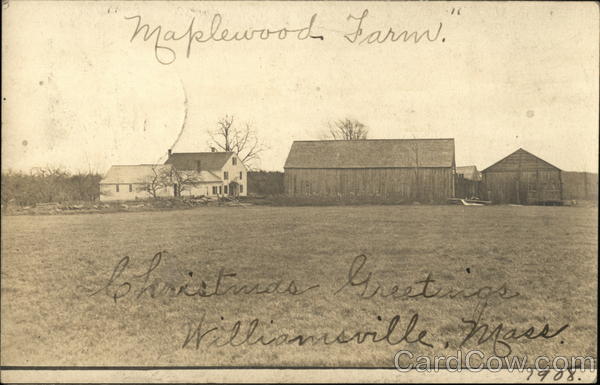 "Maplewood Farm."
Christmas Greetings
Williamsville, Mass.
1908.
CardCow.com